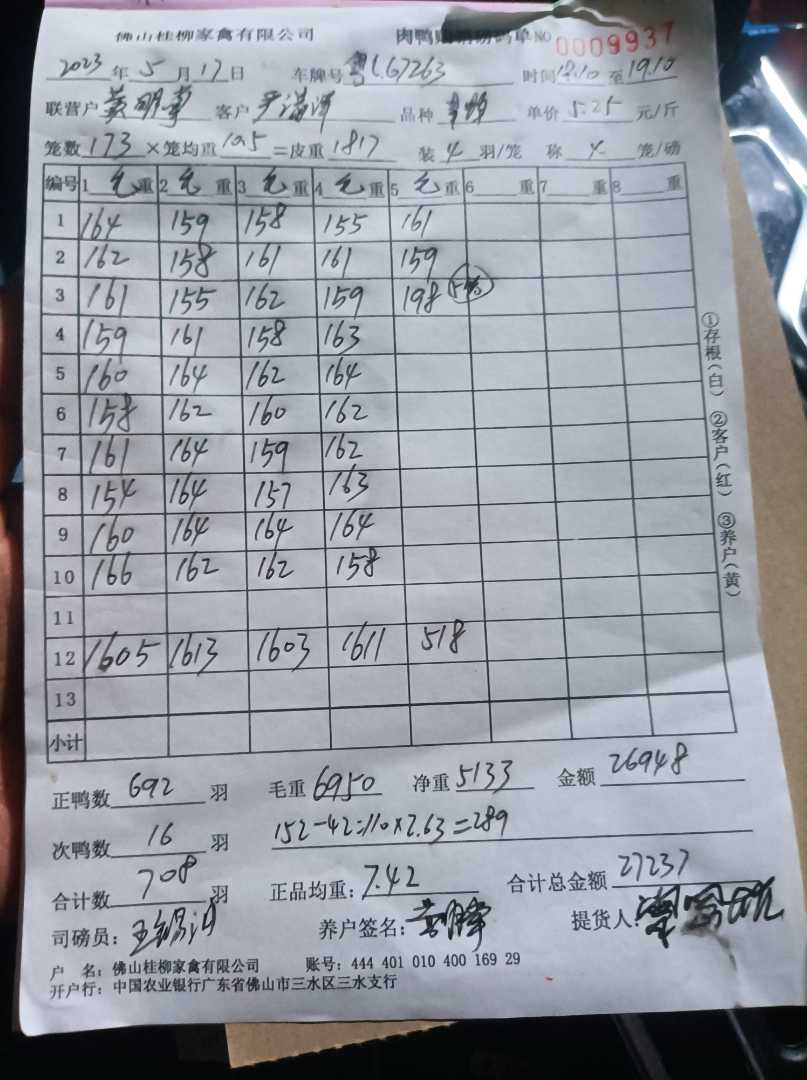 佛山桂柳家禽有限公司 肉鸭购销磅码单 NO 0009937
2023年5月17日 车牌号 粤L67263 时间 至19.10
联营户 黄明 客户 品种 单价 5.25 元/斤
笼数 173 ×笼均重 10.5 =皮重 1817 装 4 羽/笼 称 4 笼/磅
编号 1 毛重 2 毛重 3 毛重 4 毛重 5 毛重 6 重 7 重 8 重
1 164 159 158 155 161
2 162 158 161 161 159
3 161 155 162 159 198
4 159 161 158 163
5 160 164 162 164
6 158 162 160 162
7 161 164 159 162
8 154 164 157 163
9 160 164 164 164
10 166 162 162 158
11
12 1605 1613 1603 1611 518
13
小计
正鸭数 692 羽 毛重 6950 净重 5133 金额 26948
次鸭数 16 羽 152-42=110×2.63=289
合计数 708 羽 正品均重: 7.42 合计总金额 27237
司磅员: 养户签名: 黄明 提货人:
户 名: 佛山桂柳家禽有限公司 账号: 444 401 010 400 169 29
开户行: 中国农业银行广东省佛山市三水区三水支行
①存根(白) ②客户(红) ③养户(黄)